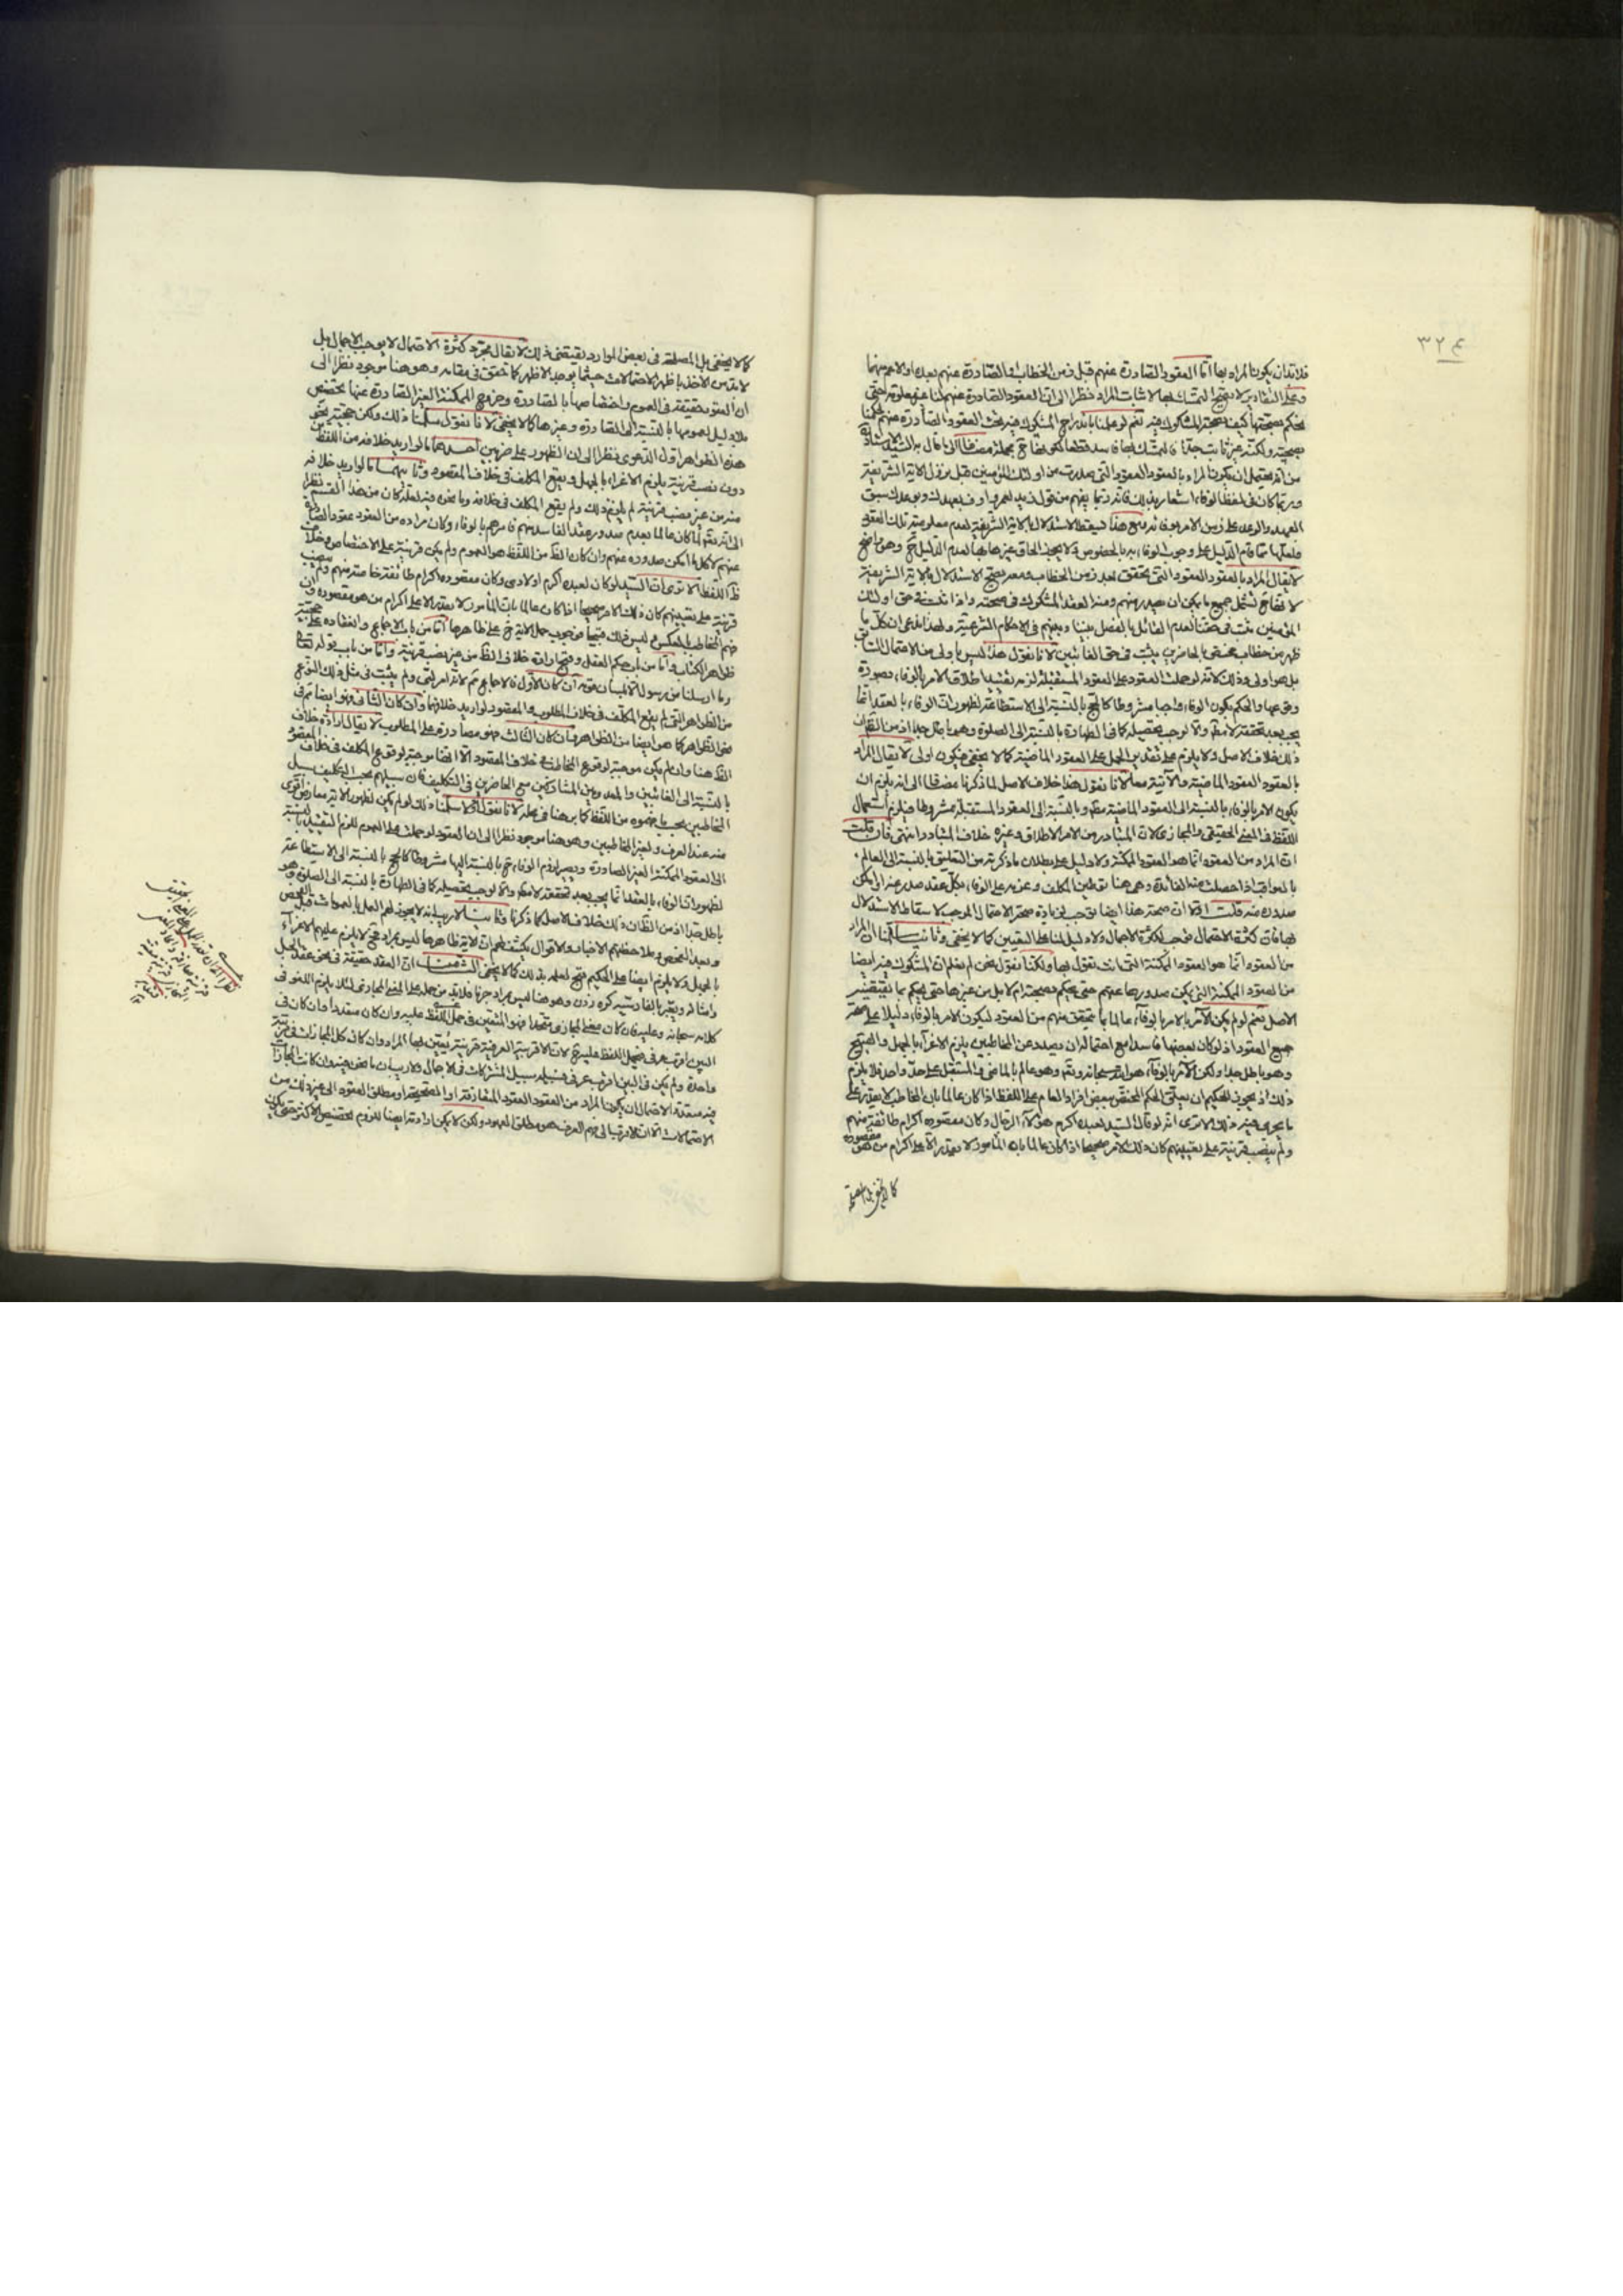 ٣٢٤
فلا بد ان يكون المراد بها اما العقود الصادرة عنهم قبل زمن الخطاب او الصادرة عنهم بعده او الاعم منهما
وعلى التقادير لا يصح التمسك بها لاثبات المراد نظرا الى ان العقود الصادرة عنهم لنا غير معلومة حتى
يحكم بصحتها كيف بصحة المشكوك فيه نعم لو علمنا باندراج المشكوك فيه تحت العقود الصادرة عنهم لحكمنا
بصحته ولكنه غير ثابت جدا
من انه يحتمل ان يكون المراد بالعقود العقود التى صدرت من اولئك المؤمنين قبل نزول الاية الشريفة
وربما كان فى لفظ الوفاء اشعار بذلك فانه ربما يفهم من قول زيد لعمرو اوف بعهدك وبوعدك سبق
العهد والوعد على زمن الامر بوفائه فيسقط الاستدلال بالاية الشريفة لعدم معلومية تلك العقود
فلعلها مما قام الدليل على وجوب الوفاء به بالخصوص ولا يجوز الحاق غيرها بها لعدم الدليل ح وهو واضح
لا يقال المراد بالعقود العقود التى تتحقق بعد زمن الخطاب ومعه يصح الاستدلال بالاية الشريفة
لانها ح تشمل جميع ما يمكن ان يصدر منهم ومنه العقد المشكوك فى صحته واذا ثبت فى حق اولئك
المؤمنين ثبت فى حقنا لعدم القائل بالفصل بيننا وبينهم فى الاحكام الشرعية ولهذا ندعى ان كل ما
ظهر من خطاب مختص بالحاضرين يثبت فى حق الغائبين لانا نقول هذا ليس باولى من الاحتمال السابق
بل هو اولى وذلك لانه لو حملت العقود على العقود المستقبلة لزم تقييد اطلاق الامر بالوفاء بصورة
وقوعها والحكم بكون الوفاء واجبا مشروطا كالحج بالنسبة الى الاستطاعة لظهور ان الوفاء بالعقد انما
يجب بعد تحققه لا مطلقا والا لوجب تحصيله كما فى الطهارة بالنسبة الى الصلوة وهو باطل جدا
ذلك خلاف الاصل ولا يلزم على تقدير الحمل على العقود الماضية كما لا يخفى فيكون اولى لا يقال المراد
بالعقود العقود الماضية والآتية معا لانا نقول هذا خلاف الاصل لما ذكرنا مضافا الى انه يلزم ان
يكون الامر بالوفاء بالنسبة الى العقود الماضية مطلقا وبالنسبة الى العقود المستقبلة مشروطا فيلزم استعمال
اللفظ فى المعنى الحقيقى والمجازى لان المتبادر من الامر الاطلاق وغيره خلاف المتبادر انتهى فان قلت
ان المراد من العقود انما هو العقود الممكنة ولا دليل على بطلان ما ذكرته من التعليق بالنسبة الى العالم
بالعواقب اذا حصلت منه الفائدة وهى هنا توطين المكلف وعزمه على الوفاء بكل عقد صدر عنه او يمكن
صدوره منه قلت اولا ان صحة هذا ايضا يوجب زيادة صحة الاحتمال الموجب لاسقاط الاستدلال
بها فان كثرة الاحتمال توجب كثرة الاجمال ولا دليل لنا على التعيين كما لا يخفى وثانيا سلمنا ان المراد
من العقود انما هو العقود الممكنة التى انت تقول بها ولكنا نقول نحن لم نعلم ان المشكوك فيه ايضا
من العقود الممكنة التى يمكن صدورها عنهم حتى يحكم بصحته ام لا بل من غيرها حتى يحكم بما يقتضيه
الاصل نعم لو لم يكن الآمر بالامر بالوفاء عالما بما يتحقق منهم من العقود ليكون الامر بالوفاء دليلا على صحة
جميع العقود اذ لو كان بعضها فاسدا مع احتمال ان يصدر عن المخاطبين يلزم الاغراء بالجهل والقبيح
وهو باطل جدا ولكن الآمر بالوفاء هو الله سبحانه وتعالى وهو عالم بالماضى والمستقبل على حد واحد فلا يلزم
ذلك اذ يجوز للحكيم ان يعلق الحكم المختص ببعض افراد العام على اللفظ اذا كان عالما بان المخاطب لا يقدر على
ما يجرى فيه ذلك الا ترى انه لو قال السيد لعبده اكرم هؤلاء الرجال وكان مقصوده اكرام طائفة منهم
ولم ينصب قرينة على تعيينهم كان ذلك الامر صحيحا اذا كان عالما بان المأمور لا يقدر الا على اكرام من هو مقصوده
كما لا يخفى بل المصلحة
كما لا يخفى بل المصلحة فى بعض الموارد يقتضى ذلك لا يقال مجرد كثرة الاحتمال لا يوجب الاجمال بل
لا بد من الاخذ باظهر الاحتمالات حيثما يوجد الاظهر كما تحقق فى مقامه وهو هنا موجود نظرا الى
ان العقود حقيقة فى العموم واختصاصها بالصادرة وخروج الممكنة الغير الصادرة عنها تخصيص
بلا دليل لعمومها بالنسبة الى الصادرة وغيرها كما لا يخفى لانا نقول سلمنا ذلك ولكن حجية نحو
هذه الظواهر اول الدعوى نظرا الى ان الظهور على ضربين احدهما ما لو اريد خلافه من اللفظ
دون نصب قرينة يلزم الاغراء بالجهل ويقع المكلف فى خلاف المقصود وثانيهما ما لو اريد خلافه
منه من غير نصب قرينة لم يلزم ذلك ولم يقع المكلف فى خلافه وما نحن فيه لعله كان من هذا القسم نظرا
الى انه تعالى لما كان عالما بعدم صدور عقد الفاسد منهم فامرهم بالوفاء وكان مراده من العقود عقود الصادرة
عنهم لا كل ما امكن صدوره عنهم وان كان الظ من اللفظ هو العموم ولم يكن قرينة على الاختصاص وخلاف
ظ اللفظ الا ترى ان السيد لو كان لعبده اكرم اولادى وكان مقصوده اكرام طائفة خاصة منهم ولم ينصب
قرينة على تعيينهم كان ذلك الامر صحيحا اذا كان عالما بان المأمور لا يقدر الا على اكرام من هو مقصوده وان
فهم المخاطب بالعكس وليس ذلك قبيحا فوجوب حمل الاية ح على ظاهرها اما من باب الاجماع وانعقاده على حجية
ظواهر الكتاب واما من باب حكم العقل وقبح ارادة خلاف الظ من غير نصب قرينة واما من باب قوله تعالى
وما ارسلنا من رسول الا بلسان قومه ان كان الاول فالاجماع ثم لانه امر لبى ولم يثبت فى مثل ذلك النوع
من الظواهر التى لم يقع المكلف فى خلاف المطلوب والمقصود لو اريد خلافها وان كان الثانى فهو ايضا ثم فى
نحو الظواهر كما هو ايضا من الظواهر وان كان الثالث فهو مصادرة على المطلوب لا يقال ارادة خلاف
الظ هنا وان لم يكن موجبة لوقوع المخاطب فى خلاف المقصود الا انها موجبة لوقوع المكلف فى خلاف المقصود
بالنسبة الى الغائبين والمعدومين المشاركين مع الحاضرين فى التكليف فان سبيلهم بحسب التكليف سبيل
المخاطبين بحسب ما يفهموه من اللفظ كما برهنا فى محله لانا نقول اولا سلمنا ذلك لو لم يكن لظهور الاية معارض اقوى
منه عند العرف ولغير المخاطبين وهو هنا موجود نظرا الى ان العقود لو حملت على العموم للزم التقييد بالنسبة
الى العقود الممكنة الغير الصادرة ويصير لزوم الوفاء ح بالنسبة اليها مشروطا كالحج بالنسبة الى الاستطاعة
لظهور ان الوفاء بالعقد انما يجب بعد تحققه لا مطلقا والا لوجب تحصيله كما فى الطهارة بالنسبة الى الصلوة وهو
باطل جدا وذلك خلاف الاصل كما ذكرنا وثانيا لا ريب انه لا يجوز لهم العمل بالعمومات قبل الفحص
وبعد الفحص وملاحظتهم الاخبار والاقوال يكشف لهم ان الاية ظاهرها ليس بمراد فح لا يلزم عليهم الاغراء
بالجهل ولا يلزم ايضا على الحكيم قبح لعلمه بذلك كما لا يخفى الثامن ان العقد حقيقة فى نحو عقد الحبل
وامثاله ويعبر بالفارسية كره زدن وهو هنا ليس بمراد جزما فلا بد من حمله على المعنى المجازى لئلا يلزم اللغو فى
كلامه سبحانه وعليه فان كان معنى المجازى متحدا فهو المتعين فى حمل اللفظ عليه وان كان متعددا وان كان فى
البين اقرب عرفى فيحمل اللفظ عليه ح لان الاقربية العرفية قرينة يتعين بها المراد وان كان كل المجازات فى مرتبة
واحدة ولم يكن فى البين اقرب عرفى فسبيله سبيل المشتركات فى الاجمال ولا ريب ان ما نحن فيه وان كانت المجازات
فيه متعددة لاحتمال ان يكون المراد من العقود العقود المتعارفة او الصحيحة او مطلق العقود الى غير ذلك من
الاحتمالات الا ان الاقرب الى فهم العرف هو مطلق العهود ولكن لا يمكن ارادته ايضا للزوم تخصيص الاكثر حتى يكون